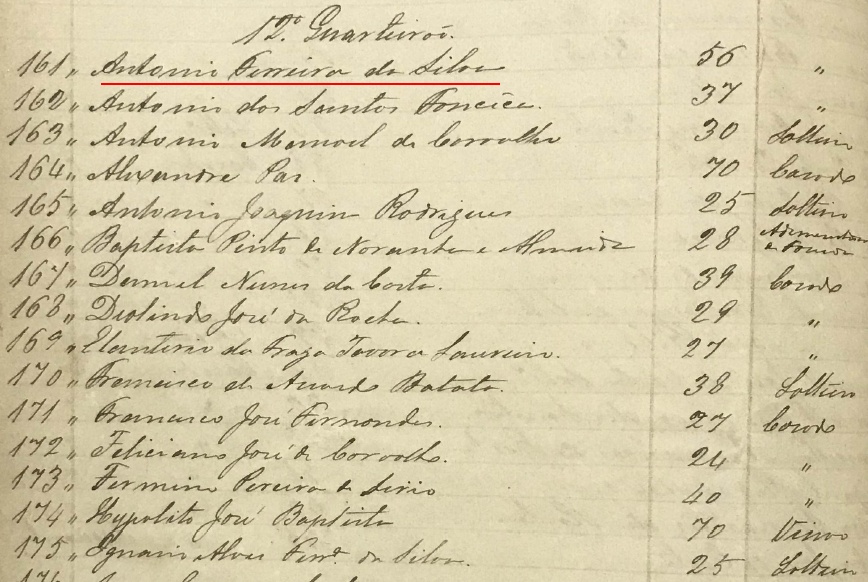 12º Quarteirão.
161 " Antonio Ferreira da Silva 56 "
162 " Antonio dos Santos Fonceca. 37 "
163 " Antonio Manoel de Carvalho 30 Solteiro
164 " Alexandre Paz. 70 Casado
165 " Antonio Joaquim Rodrigues 25 Solteiro
166 " Baptista Pinto de e Almeida 28
167 " Daniel Nunes da Costa. 39 Casado
168 " Deolindo José da Rocha. 29 "
169 " da Fraga Tavora 27 "
170 " Francisco de Batata. 38 Solteiro
171 " Francisco José Fernandes. 27 Casado
172 " Feliciano José de Carvalho. 24 "
173 " Fermino Pereira 40 "
174 " Hypolito José Baptista 70 Viuvo
175 " Ignacio Alves Ferrª. da Silva. 25 Solteiro